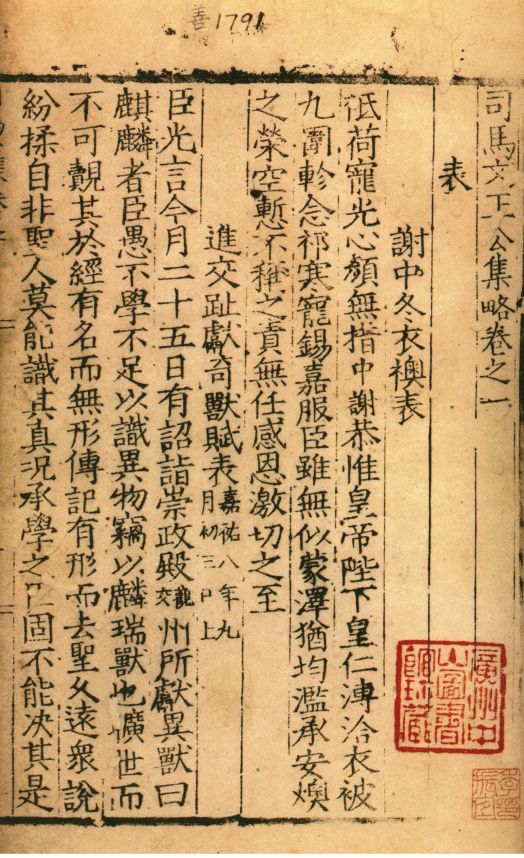 善1791
司馬文正公集略卷之一
表
謝中冬衣襖表
祗荷寵光心顏無指中謝恭惟皇帝陛下皇仁溥洽衣被
九圍軫念祁寒寵錫嘉服臣雖無似蒙澤猶均濫承安燠
之榮空慙不稱之責無任感恩激切之至
進交趾獻奇獸賦表嘉祐八年九
月初三日上
臣光言今月二十五日有詔詣崇政殿觀交州所獻異獸曰
麒麟者臣愚不學不足以識異物竊以麟瑞獸也曠世而
不可覿其於經有名而無形傳記有形而去聖久遠衆說
紛揉自非聖人莫能識其真況承學之臣固不能決其是
廣州中
山圖書
館珍藏